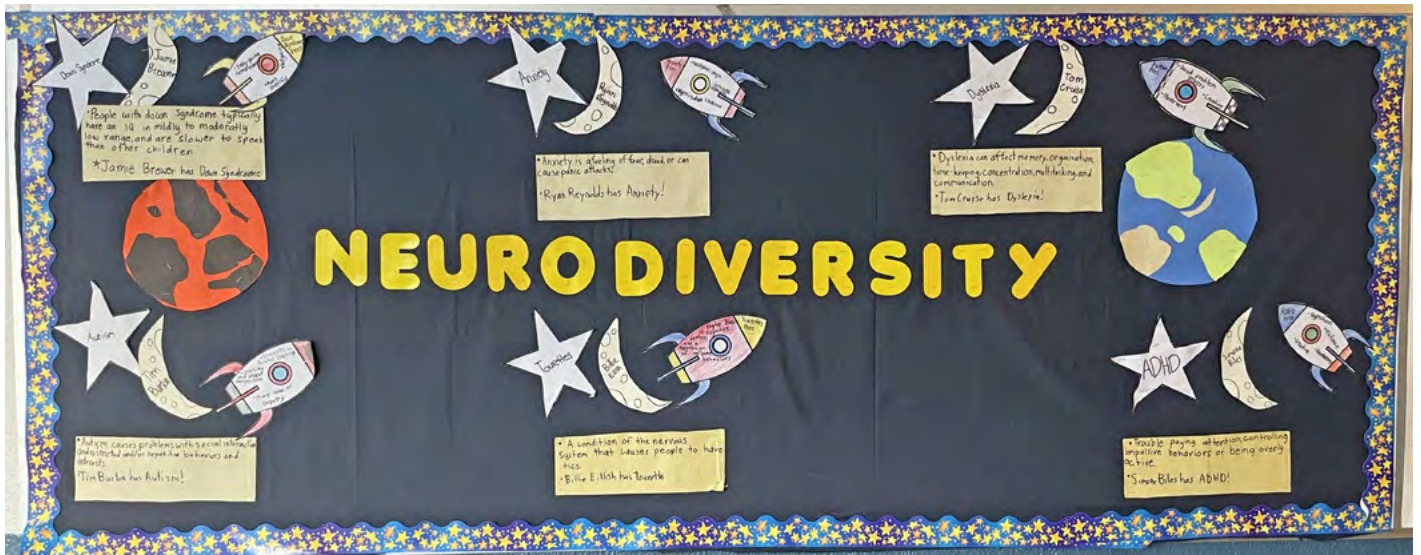 Down Syndrome
Jamie
Brewer
•People with down Syndrome typically
have an IQ in mildly to moderately
low range, and are slower to speak
than other children
*Jamie Brewer has Down Syndrome
Anxiety
Ryan
Reynolds
•Anxiety is a feeling of fear, dread, or can
cause panic attacks!
•Ryan Reynolds has Anxiety!
Dyslexia
Tom
Cruise
•Dyslexia can affect memory, organization,
time-keeping, concentration, multitasking, and
communication.
•Tom Cruise has Dyslexia!
NEURODIVERSITY
Autism
Tim
Burton
•Autism causes problems with social interaction
and restricted and/or repetitive behaviors and
interests.
•Tim Burton has Autism!
Tourettes
Billie
•A condition of the nervous
system that causes people to have
tics
•Billie Eillish has Tourette
ADHD
Simone
Biles
•Trouble paying attention, controlling
impulsive behaviors or being overly
active.
•Simone Biles has ADHD!